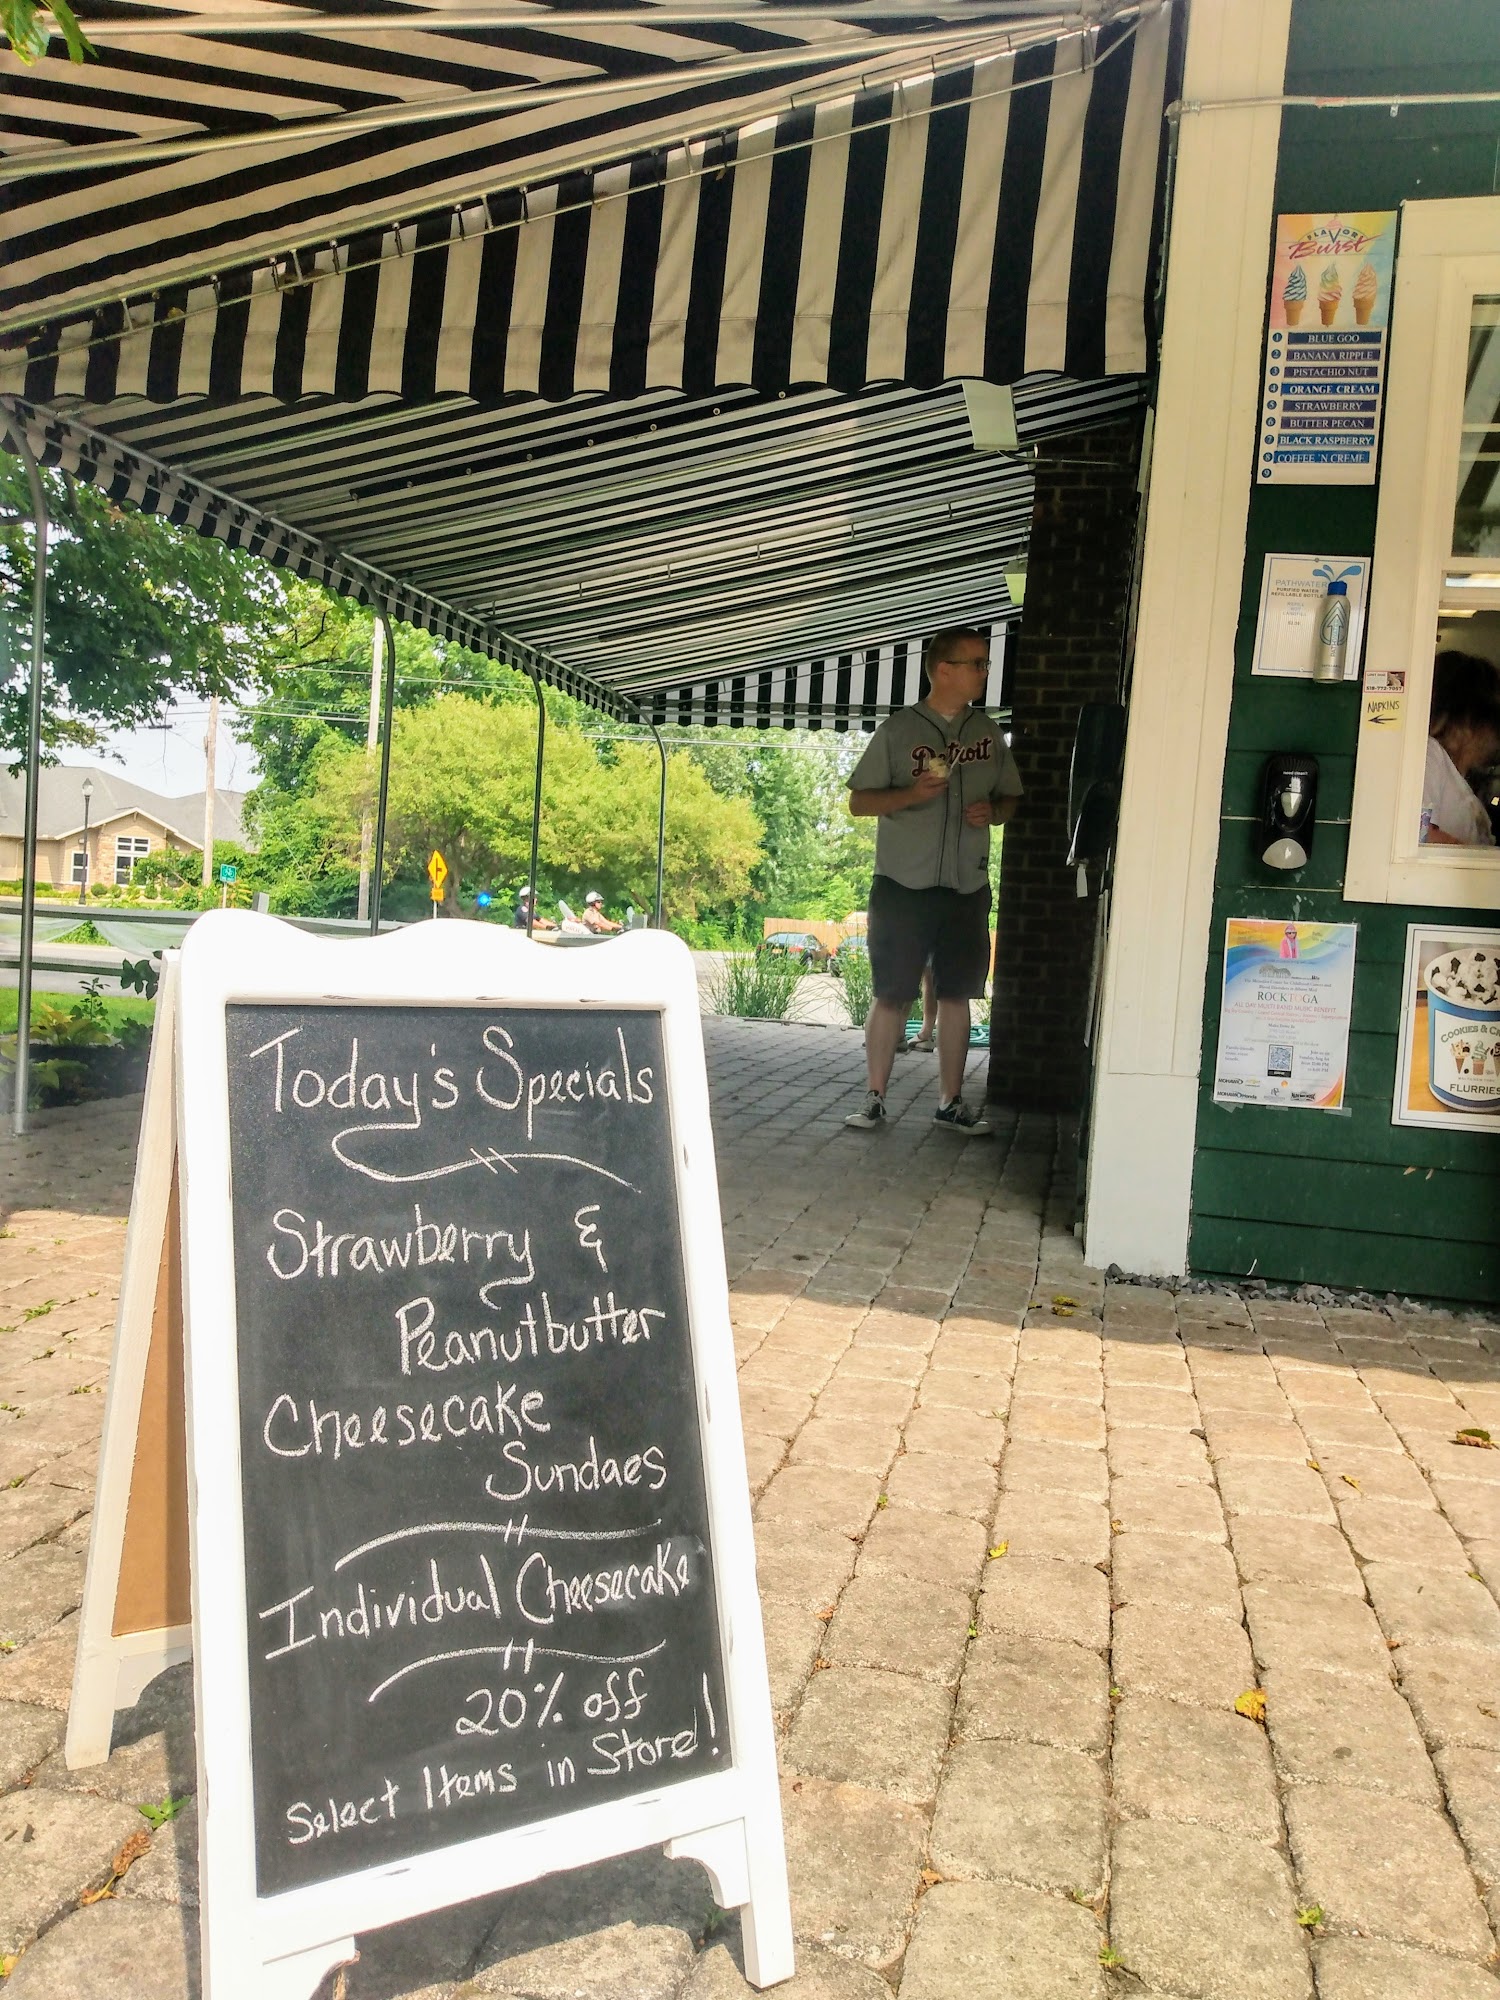 Today's Specials
Strawberry &
Peanutbutter
Cheesecake
Sundaes
Individual Cheesecake
20% off
Select Items in Store!
Detroit
FLAVOR
Burst
1 BLUE GOO
2 BANANA RIPPLE
3 PISTACHIO NUT
4 ORANGE CREAM
5 STRAWBERRY
6 BUTTER PECAN
7 BLACK RASPBERRY
8 COFFEE 'N CREME
9
PATHWATER
PURIFIED WATER
REFILLABLE BOTTLE
518-772-7007
NAPKINS
ROCKTOGA
ALL DAY MULTI-BAND MUSIC BENEFIT
MOHAWK
COOKIES &
FLURRIES